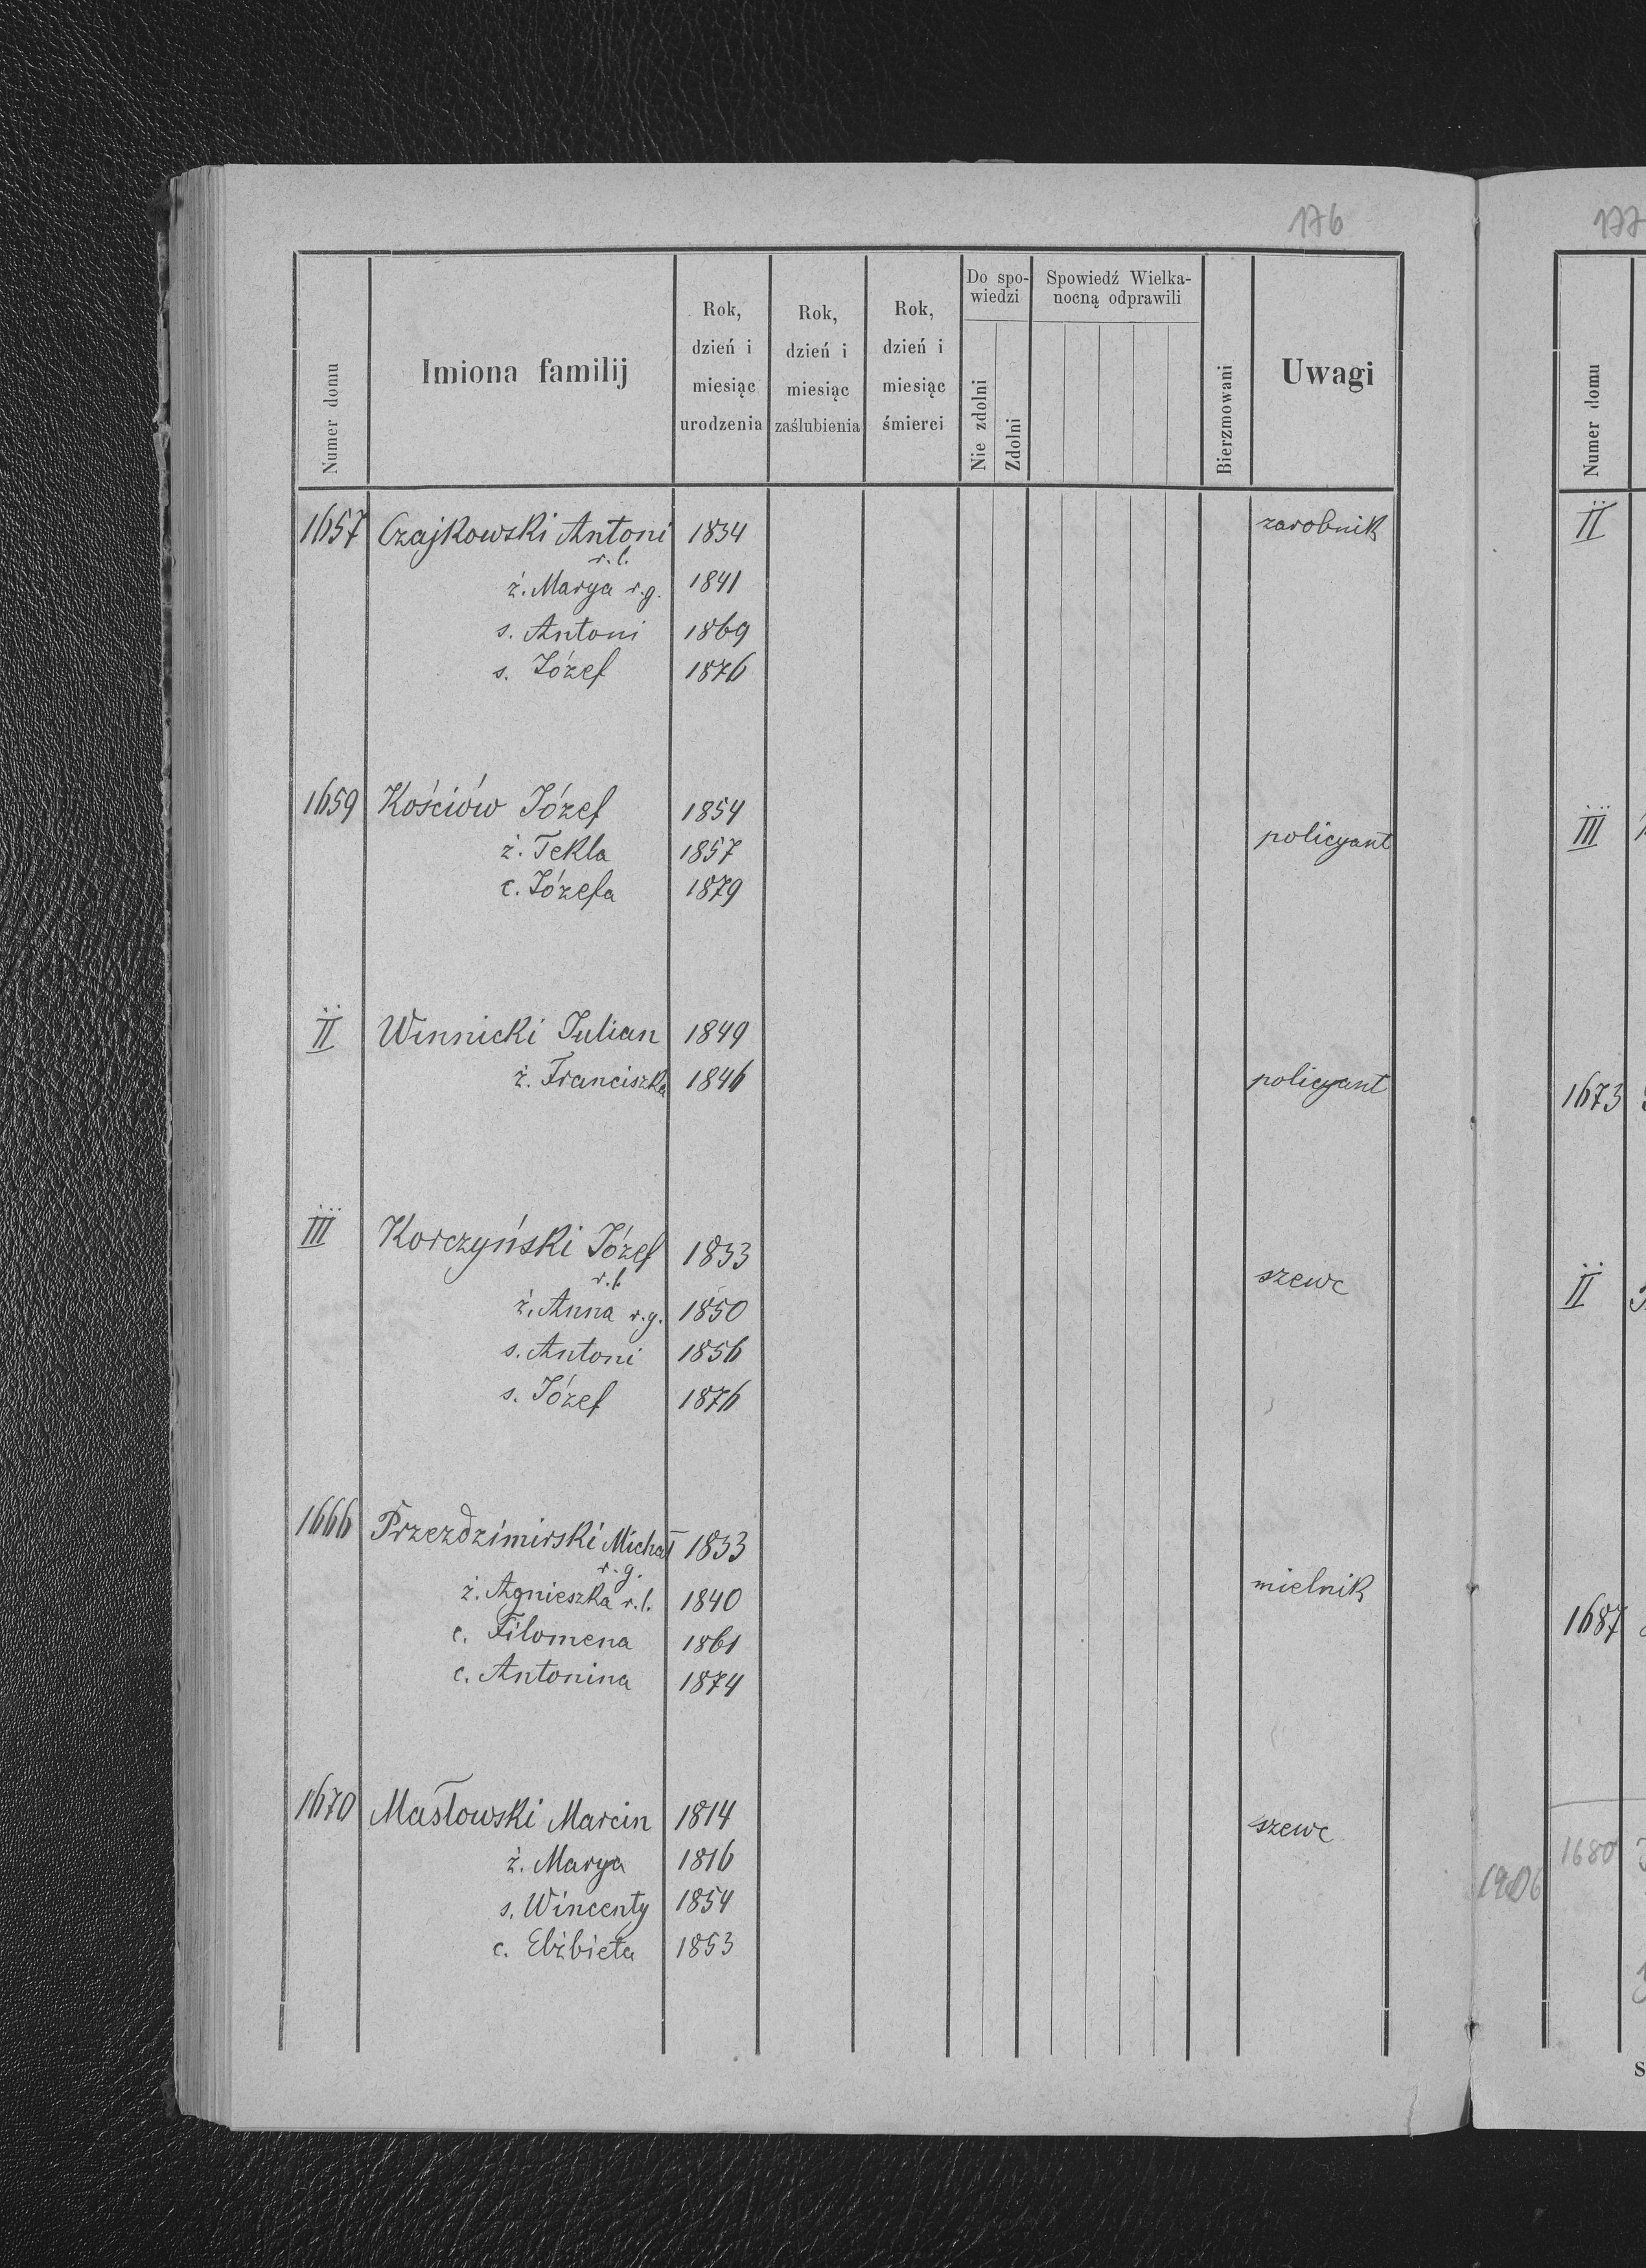 176
Numer domu
Imiona familij
Rok, dzień i miesiąc urodzenia
Rok, dzień i miesiąc zaślubienia
Rok, dzień i miesiąc śmierci
Do spo-
wiedzi
Nie zdolni
Zdolni
Spowiedź Wielka-
nocną odprawili
Bierzmowani
Uwagi
1657 Czajkowski Antoni 1834 zarobnik
r.l.
ż. Marya r.g. 1841
s. Antoni 1869
s. Józef 1876
1659 Kościów Józef 1854
ż. Tekla 1857 policyant
c. Józefa 1879
II Winnicki Julian 1849
ż. Franciszka 1846 policyant
III Korczyński Józef 1833
r.l. szewc
ż. Anna r.g. 1850
s. Antoni 1856
s. Józef 1876
1666 Przezdzimirski Michał 1833
r.g.
ż. Agnieszka r.l. 1840 mielnik
c. Filomena 1861
c. Antonina 1874
1670 Masłowski Marcin 1814 szewc
ż. Marya 1816
s. Wincenty 1854
c. Elżbieta 1853
177
Numer domu
II
III
1673
II
1687
1680
1906